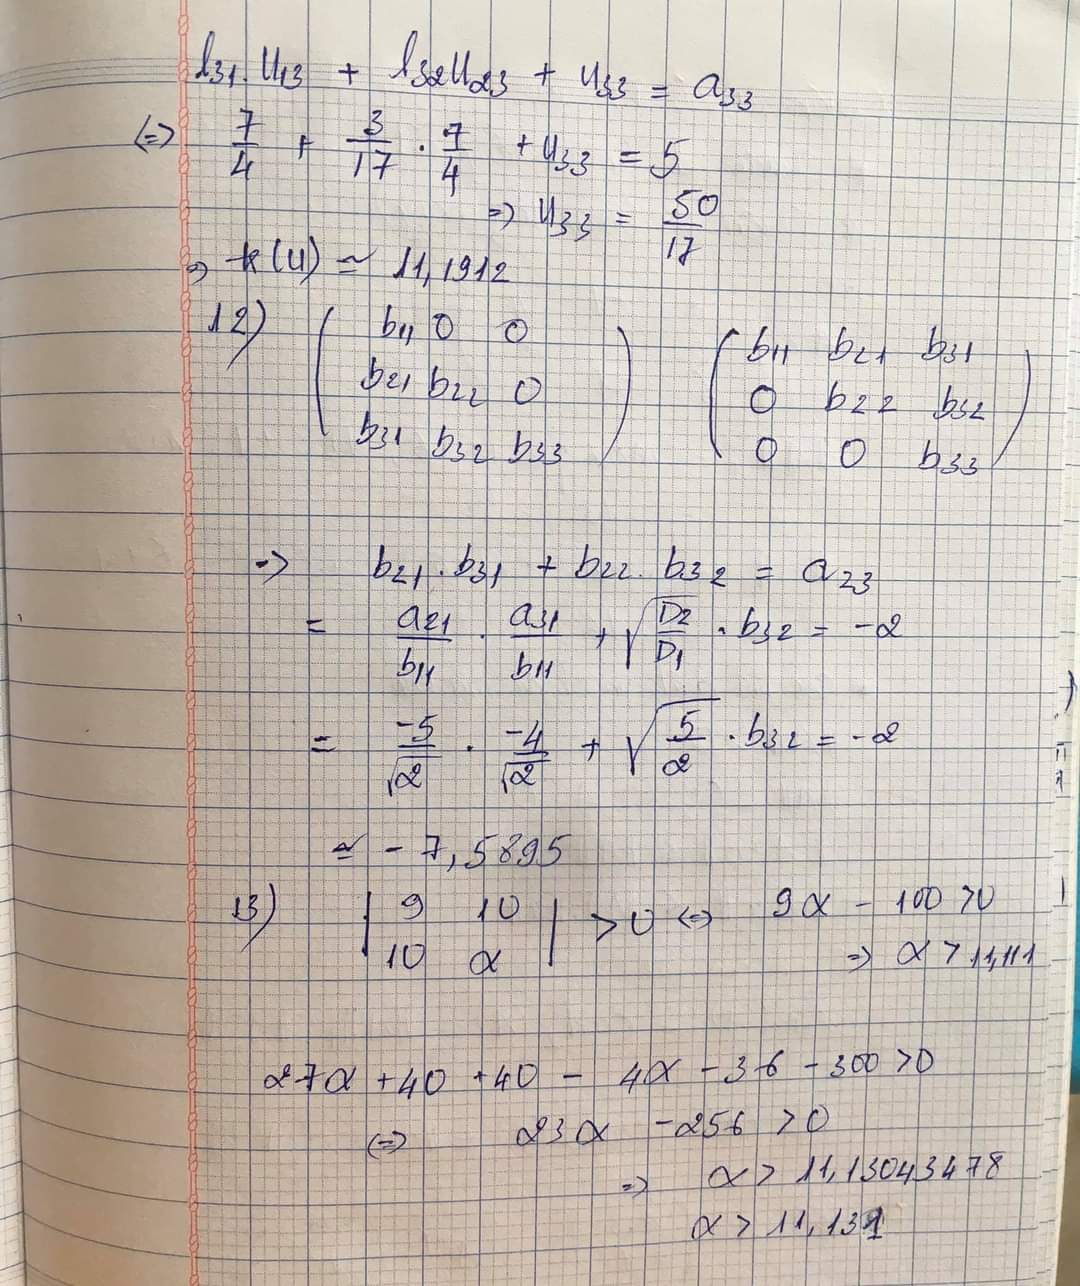 l31. U13 + l32U23 + U33 = a33
(=) 7/4 + 3/17 . 7/4 + U33 = 5
=> U33 = 50/17
=> k(U) ≃ 11,1912
12) ( b11 0 0 ( b11 b21 b31
b21 b22 0 0 b22 b32
b31 b32 b33 ) 0 0 b33 )
=> b21.b31 + b22.b32 = a23
= a21/b11 . a31/b11 + √(D2/D1) . b32 = -2
= -5/√2 . -4/√2 + √(5/2) . b32 = -2
≃ -7,5895
13) | 9 10 | > 0 (=) 9α - 100 > 0
10 α => α > 11,111
27α + 40 + 40 - 4α - 36 - 300 > 0
(=) 23α - 256 > 0
=> α > 11,13043478
α > 11,131